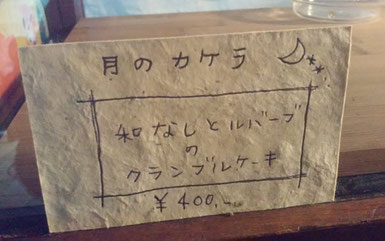 月のカケラ
和なしとルバーブ
の
クランブルケーキ
¥400.-